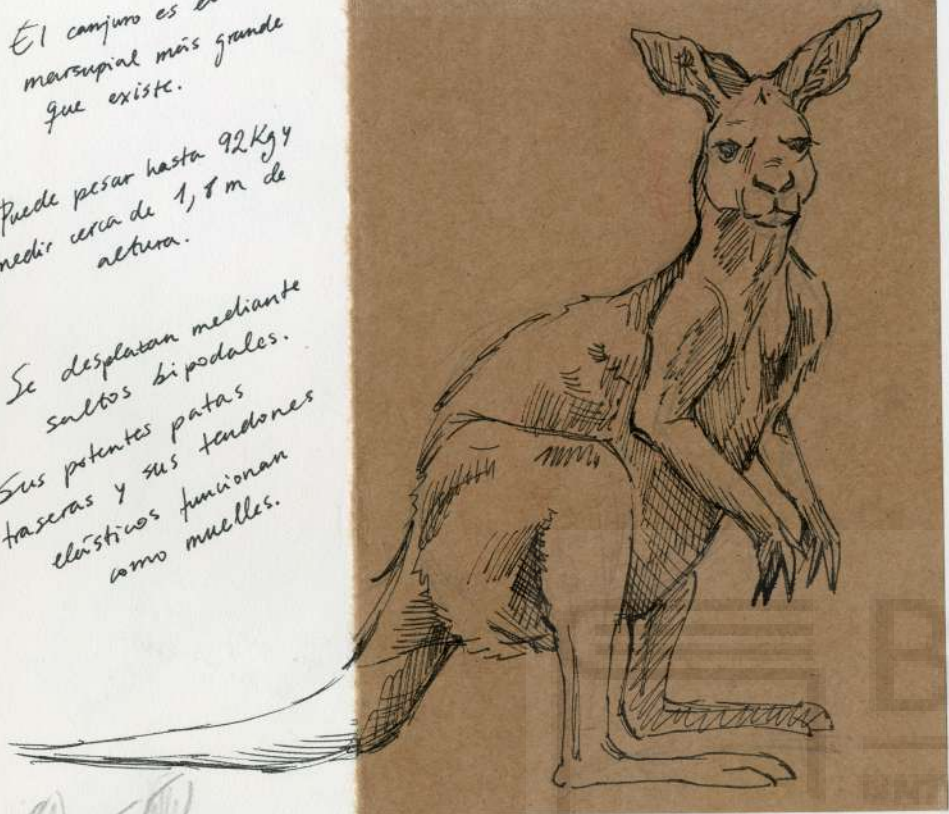 El canjuro es el
marsupial más grande
que existe.
Puede pesar hasta 92Kg y
medir cerca de 1,8 m de
altura.
Se desplazan mediante
saltos bipodales.
Sus potentes patas
traseras y sus tendones
elásticos funcionan
como muelles.
B